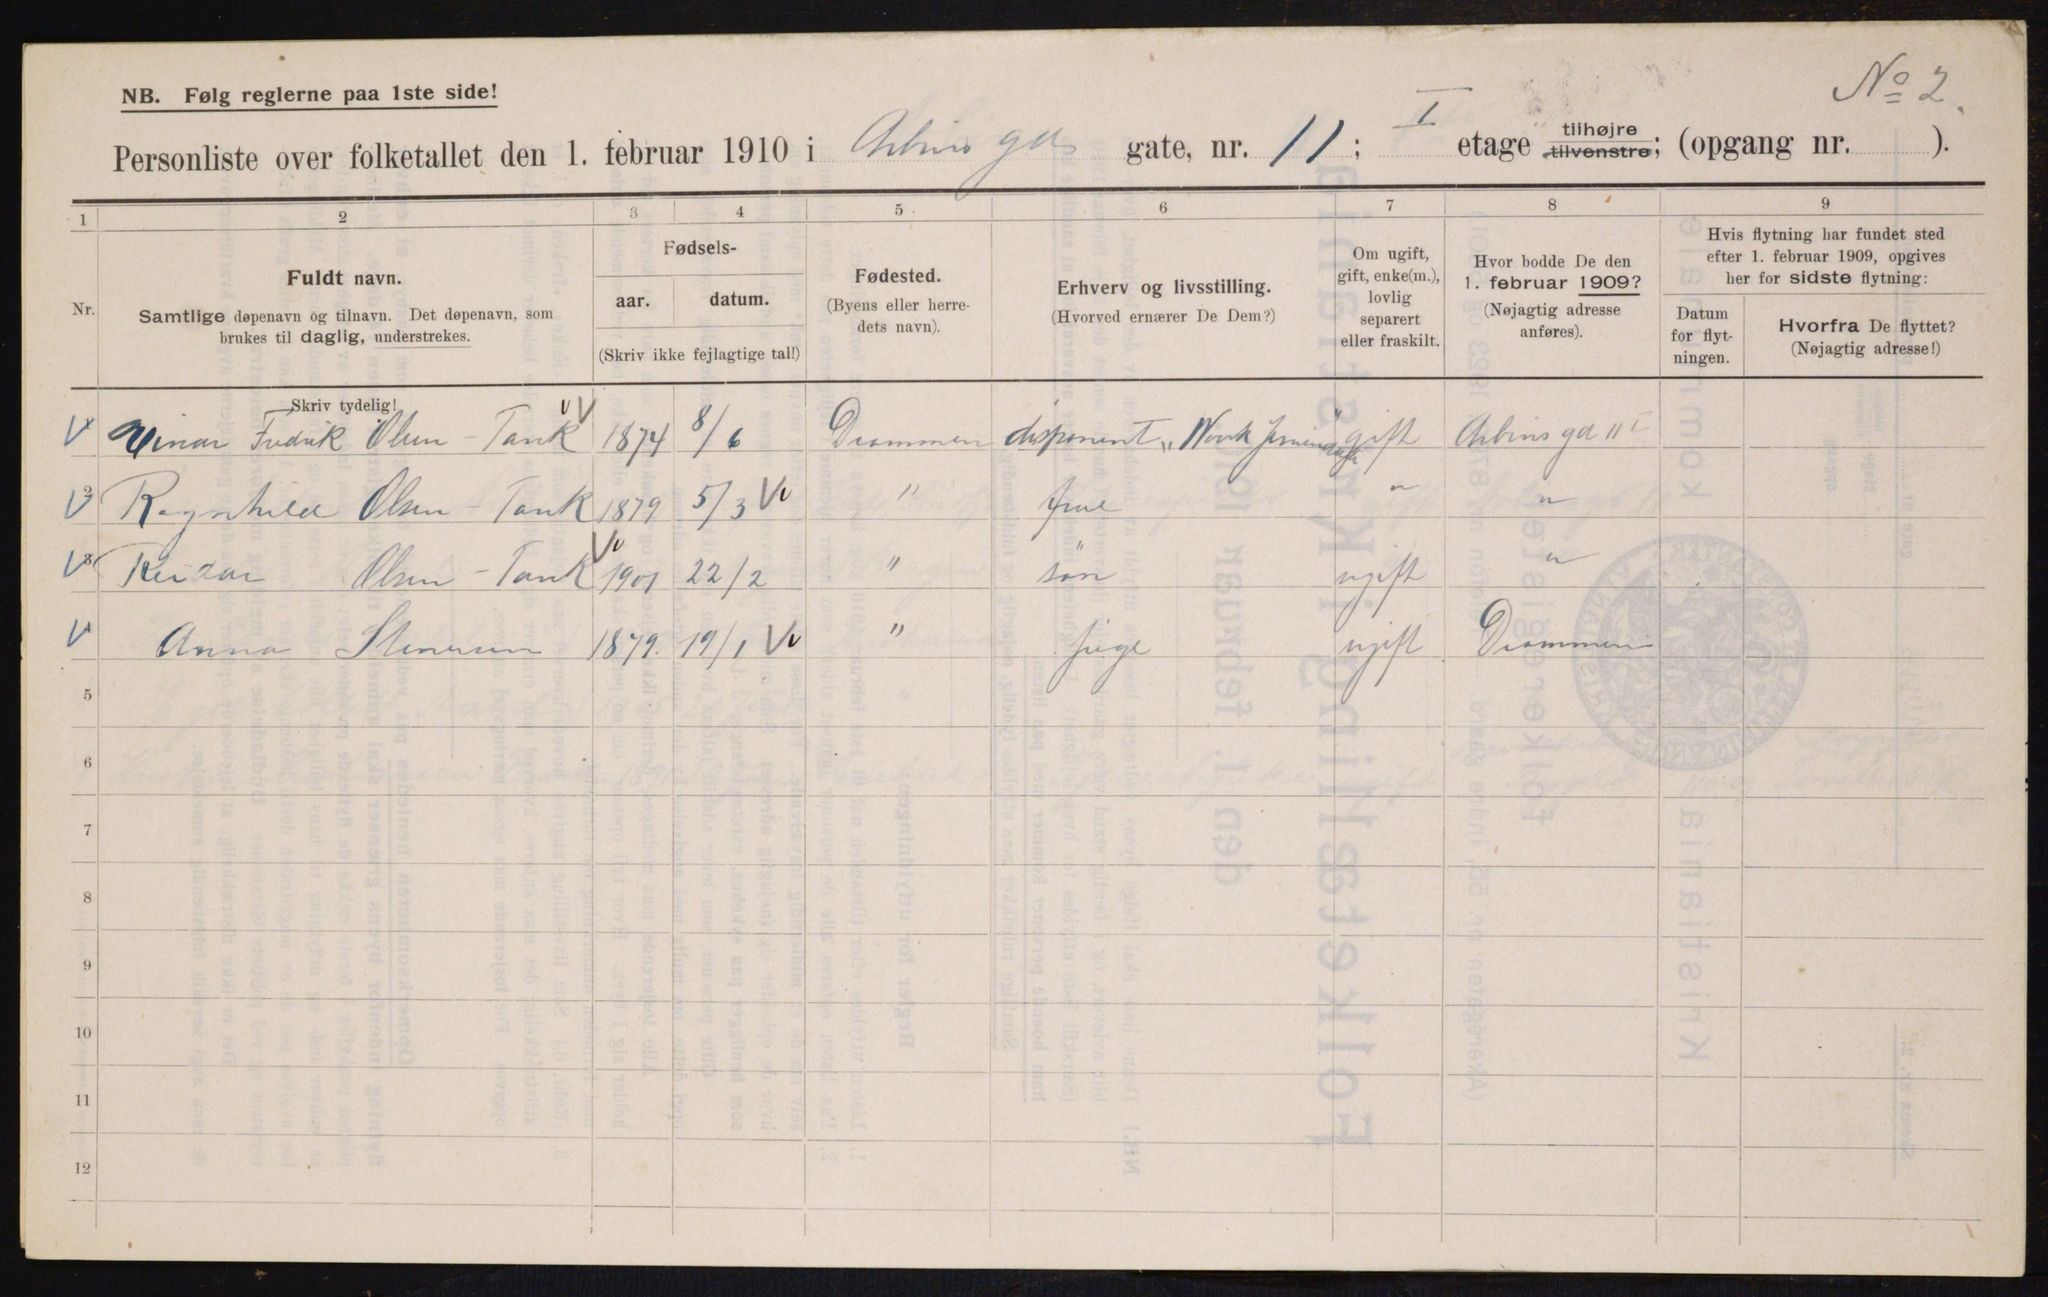 NB. Følg reglerne paa 1ste side!
No 2.
Personliste over folketallet den 1. februar 1910 i Arbins gd gate, nr. 11; I etage tilhøjre tilvenstre; (opgang nr. ).
1 2 3 4 5 6 7 8 9
Nr.
Fuldt navn.
Samtlige døpenavn og tilnavn. Det døpenavn, som
brukes til daglig, understrekes.
Skriv tydelig!
Fødsels-
aar. datum.
(Skriv ikke fejlagtige tal!)
Fødested.
(Byens eller herre-
dets navn).
Erhverv og livsstilling.
(Hvorved ernærer De Dem?)
Om ugift,
gift, enke(m.),
lovlig
separert
eller fraskilt.
Hvor bodde De den
1. februar 1909?
(Nøjagtig adresse
anføres).
Hvis flytning har fundet sted
efter 1. februar 1909, opgives
her for sidste flytning:
Datum
for flyt-
ningen.
Hvorfra De flyttet?
(Nøjagtig adresse!)
Einar Fredrik Olsen - Tank 1874 8/6 Drammen disponent „Norsk gift Arbins gd 11 I
2 Ragnhild Olsen - Tank 1879 5/3 " frue " "
3 Reidar Olsen - Tank 1901 22/2 " søn ugift "
Anna Stenersen 1879. 19/1 " pige ugift Drammen
5
6
7
8
9
10
11
12